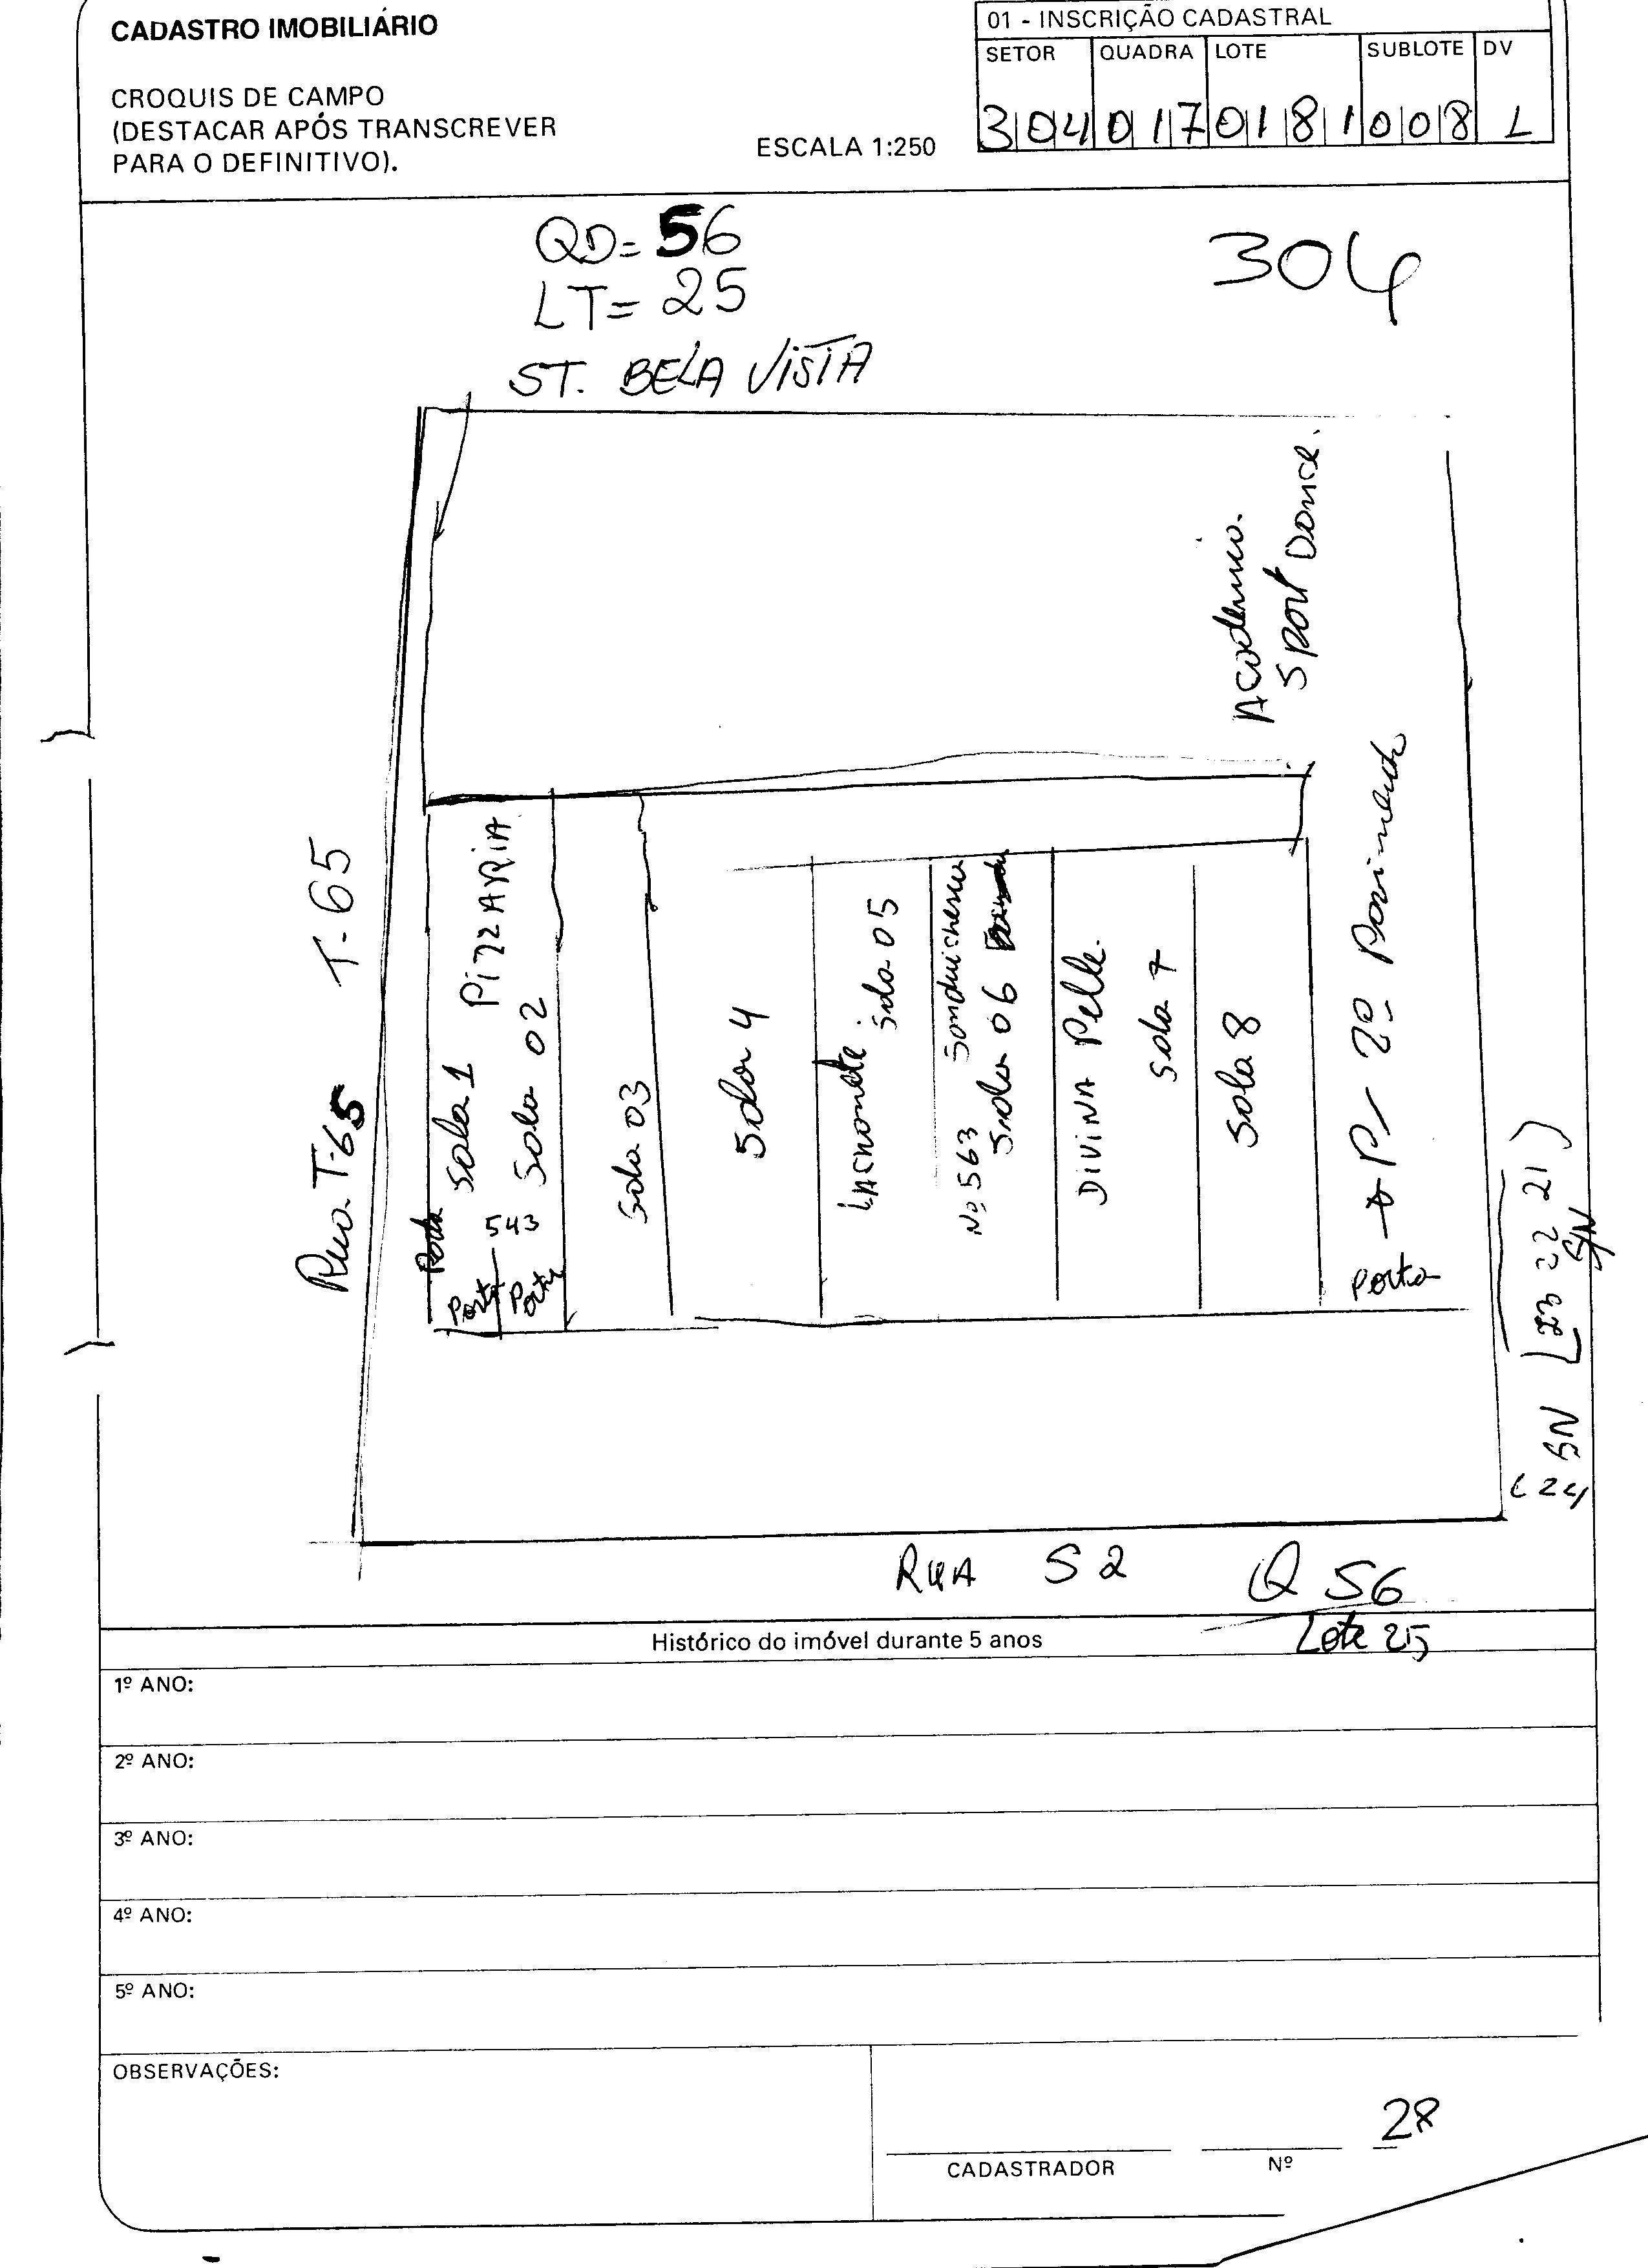 CADASTRO IMOBILIÁRIO
CROQUIS DE CAMPO
(DESTACAR APÓS TRANSCREVER
PARA O DEFINITIVO).
ESCALA 1:250
01 - INSCRIÇÃO CADASTRAL
SETOR QUADRA LOTE SUBLOTE DV
304 017 0181 008 L
QD= 56
LT= 25
ST. BELA VISTA
304
Academia.
Sport Dance.
Rua T-65 T-65
Porta Sala 1 PIZZARIA
Porta 543 Sala 02
Porta
Sala 03
Sala 4
Lachonete Sala 05
Nº 563 Sanduicheria
Sala 06
DIVINA Pelle.
Sala 7
Sala 8
Porta P/ 2º Pavimento
23 22 21)
S/N
(24 SN
RUA S 2
Q 56
Lote 25
Histórico do imóvel durante 5 anos
1º ANO:
2º ANO:
3º ANO:
4º ANO:
5º ANO:
OBSERVAÇÕES:
28
CADASTRADOR Nº